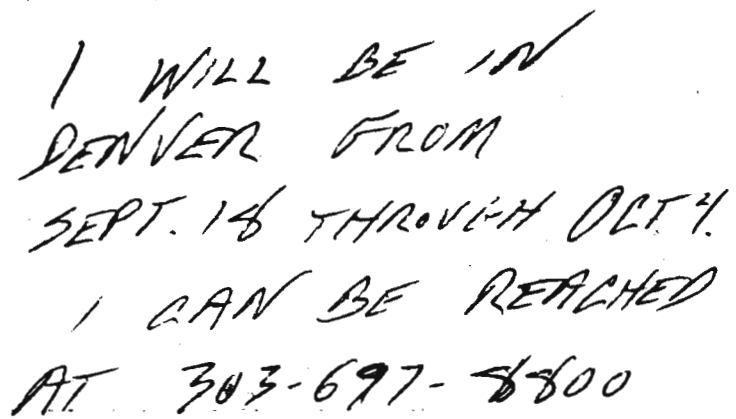 I WILL BE IN
DENVER FROM
SEPT. 18 THROUGH OCT 4.
I CAN BE REACHED
AT 303-697-8800